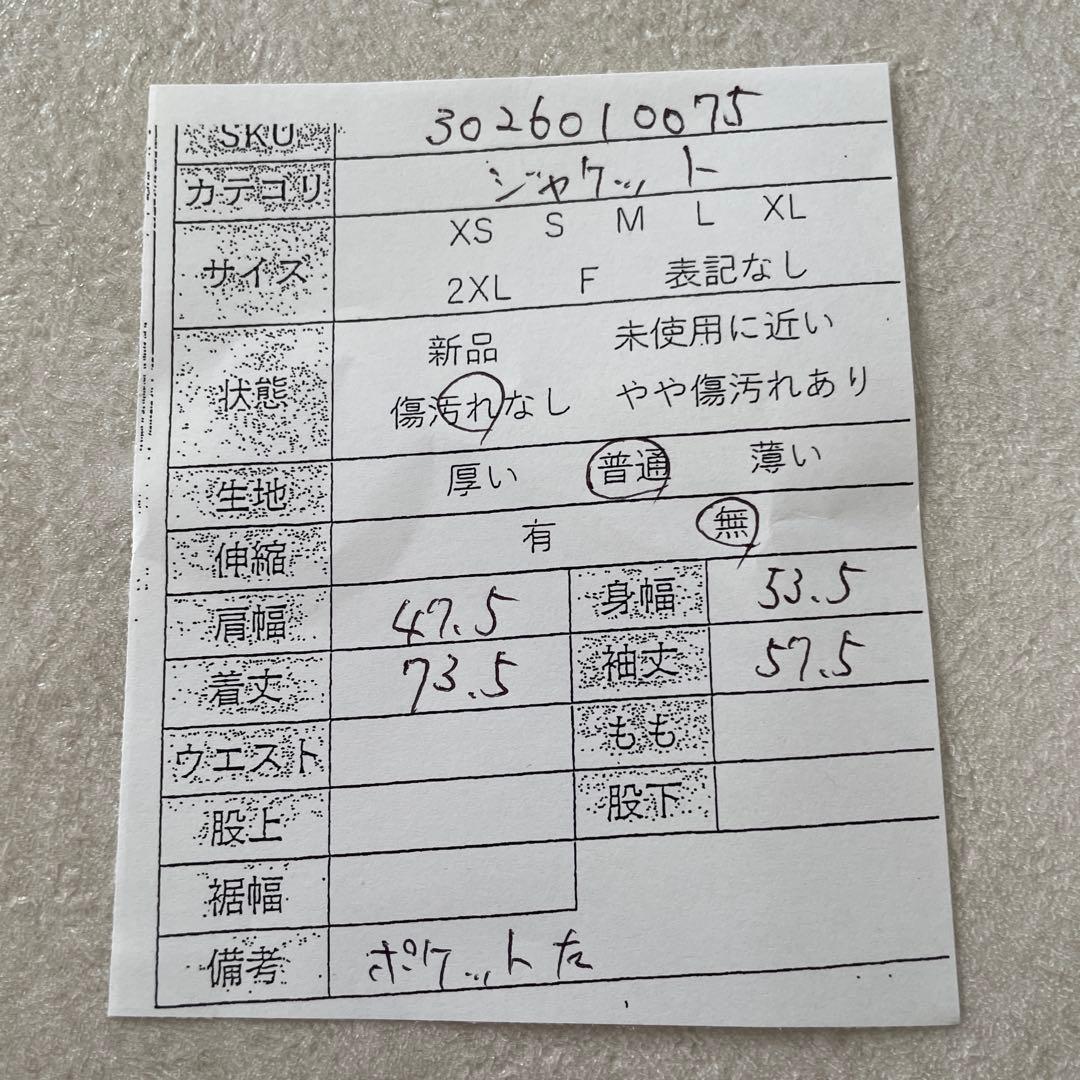 SKU 3026010075
カテゴリ ジャケット
サイズ XS S M L XL
2XL F 表記なし
状態 新品 未使用に近い
傷汚れなし やや傷汚れあり
生地 厚い 普通 薄い
伸縮 有 無
肩幅 47.5 身幅 53.5
着丈 73.5 袖丈 57.5
ウエスト もも
股上 股下
裾幅
備考 ポケット